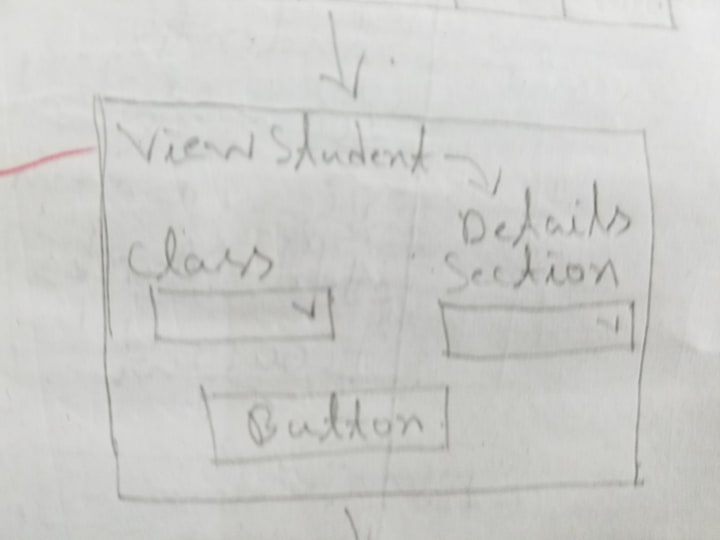 View Student
Details
Class
Section
Button